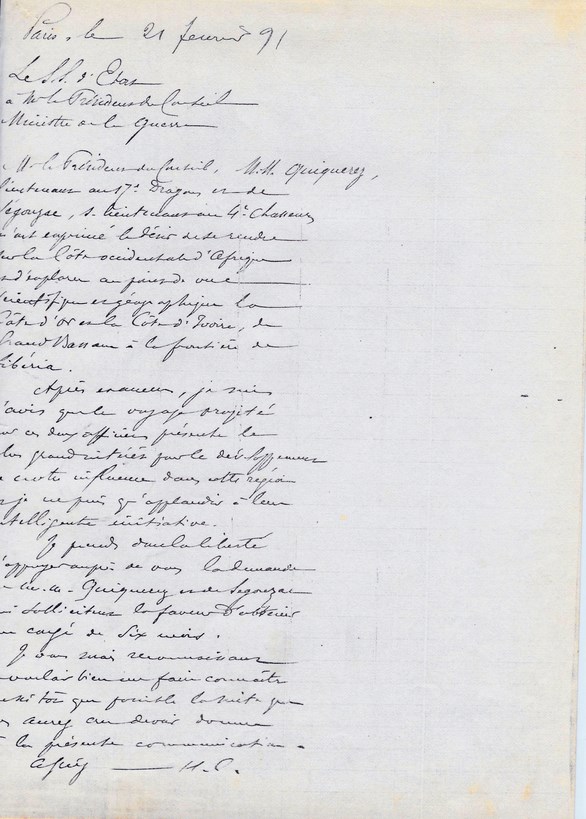 Paris, le 21 février 91
Le S.S. d'Etat
à Mr le Président du Conseil
Ministre de la Guerre
Mr le Président du Conseil, M.M. Quiquerez,
lieutenant au 17e Dragons et de
Ségonzac, s. lieutenant au 4e Chasseurs
m'ont exprimé le désir de se rendre
sur la Côte occidentale d'Afrique
et d'explorer au point de vue
scientifique et géographique la
Côte d'Or et la Côte d'Ivoire, de
Grand Bassam à la frontière de
Libéria.
Après examen, je suis
d'avis que le voyage projeté
par ces deux officiers présente le
plus grand intérêt pour le développement
de notre influence dans cette région
et je ne puis qu'applaudir à leur
intelligente initiative.
Je prends donc la liberté
d'appuyer auprès de vous la demande
de M.M. Quiquerez et de Segonzac
qui sollicitent la faveur d'obtenir
un congé de six mois.
Je vous serais reconnaissant
de vouloir bien me faire connaître
aussitôt que possible la suite que
vous aurez cru devoir donner
à la présente communication.
Agréez H.C.